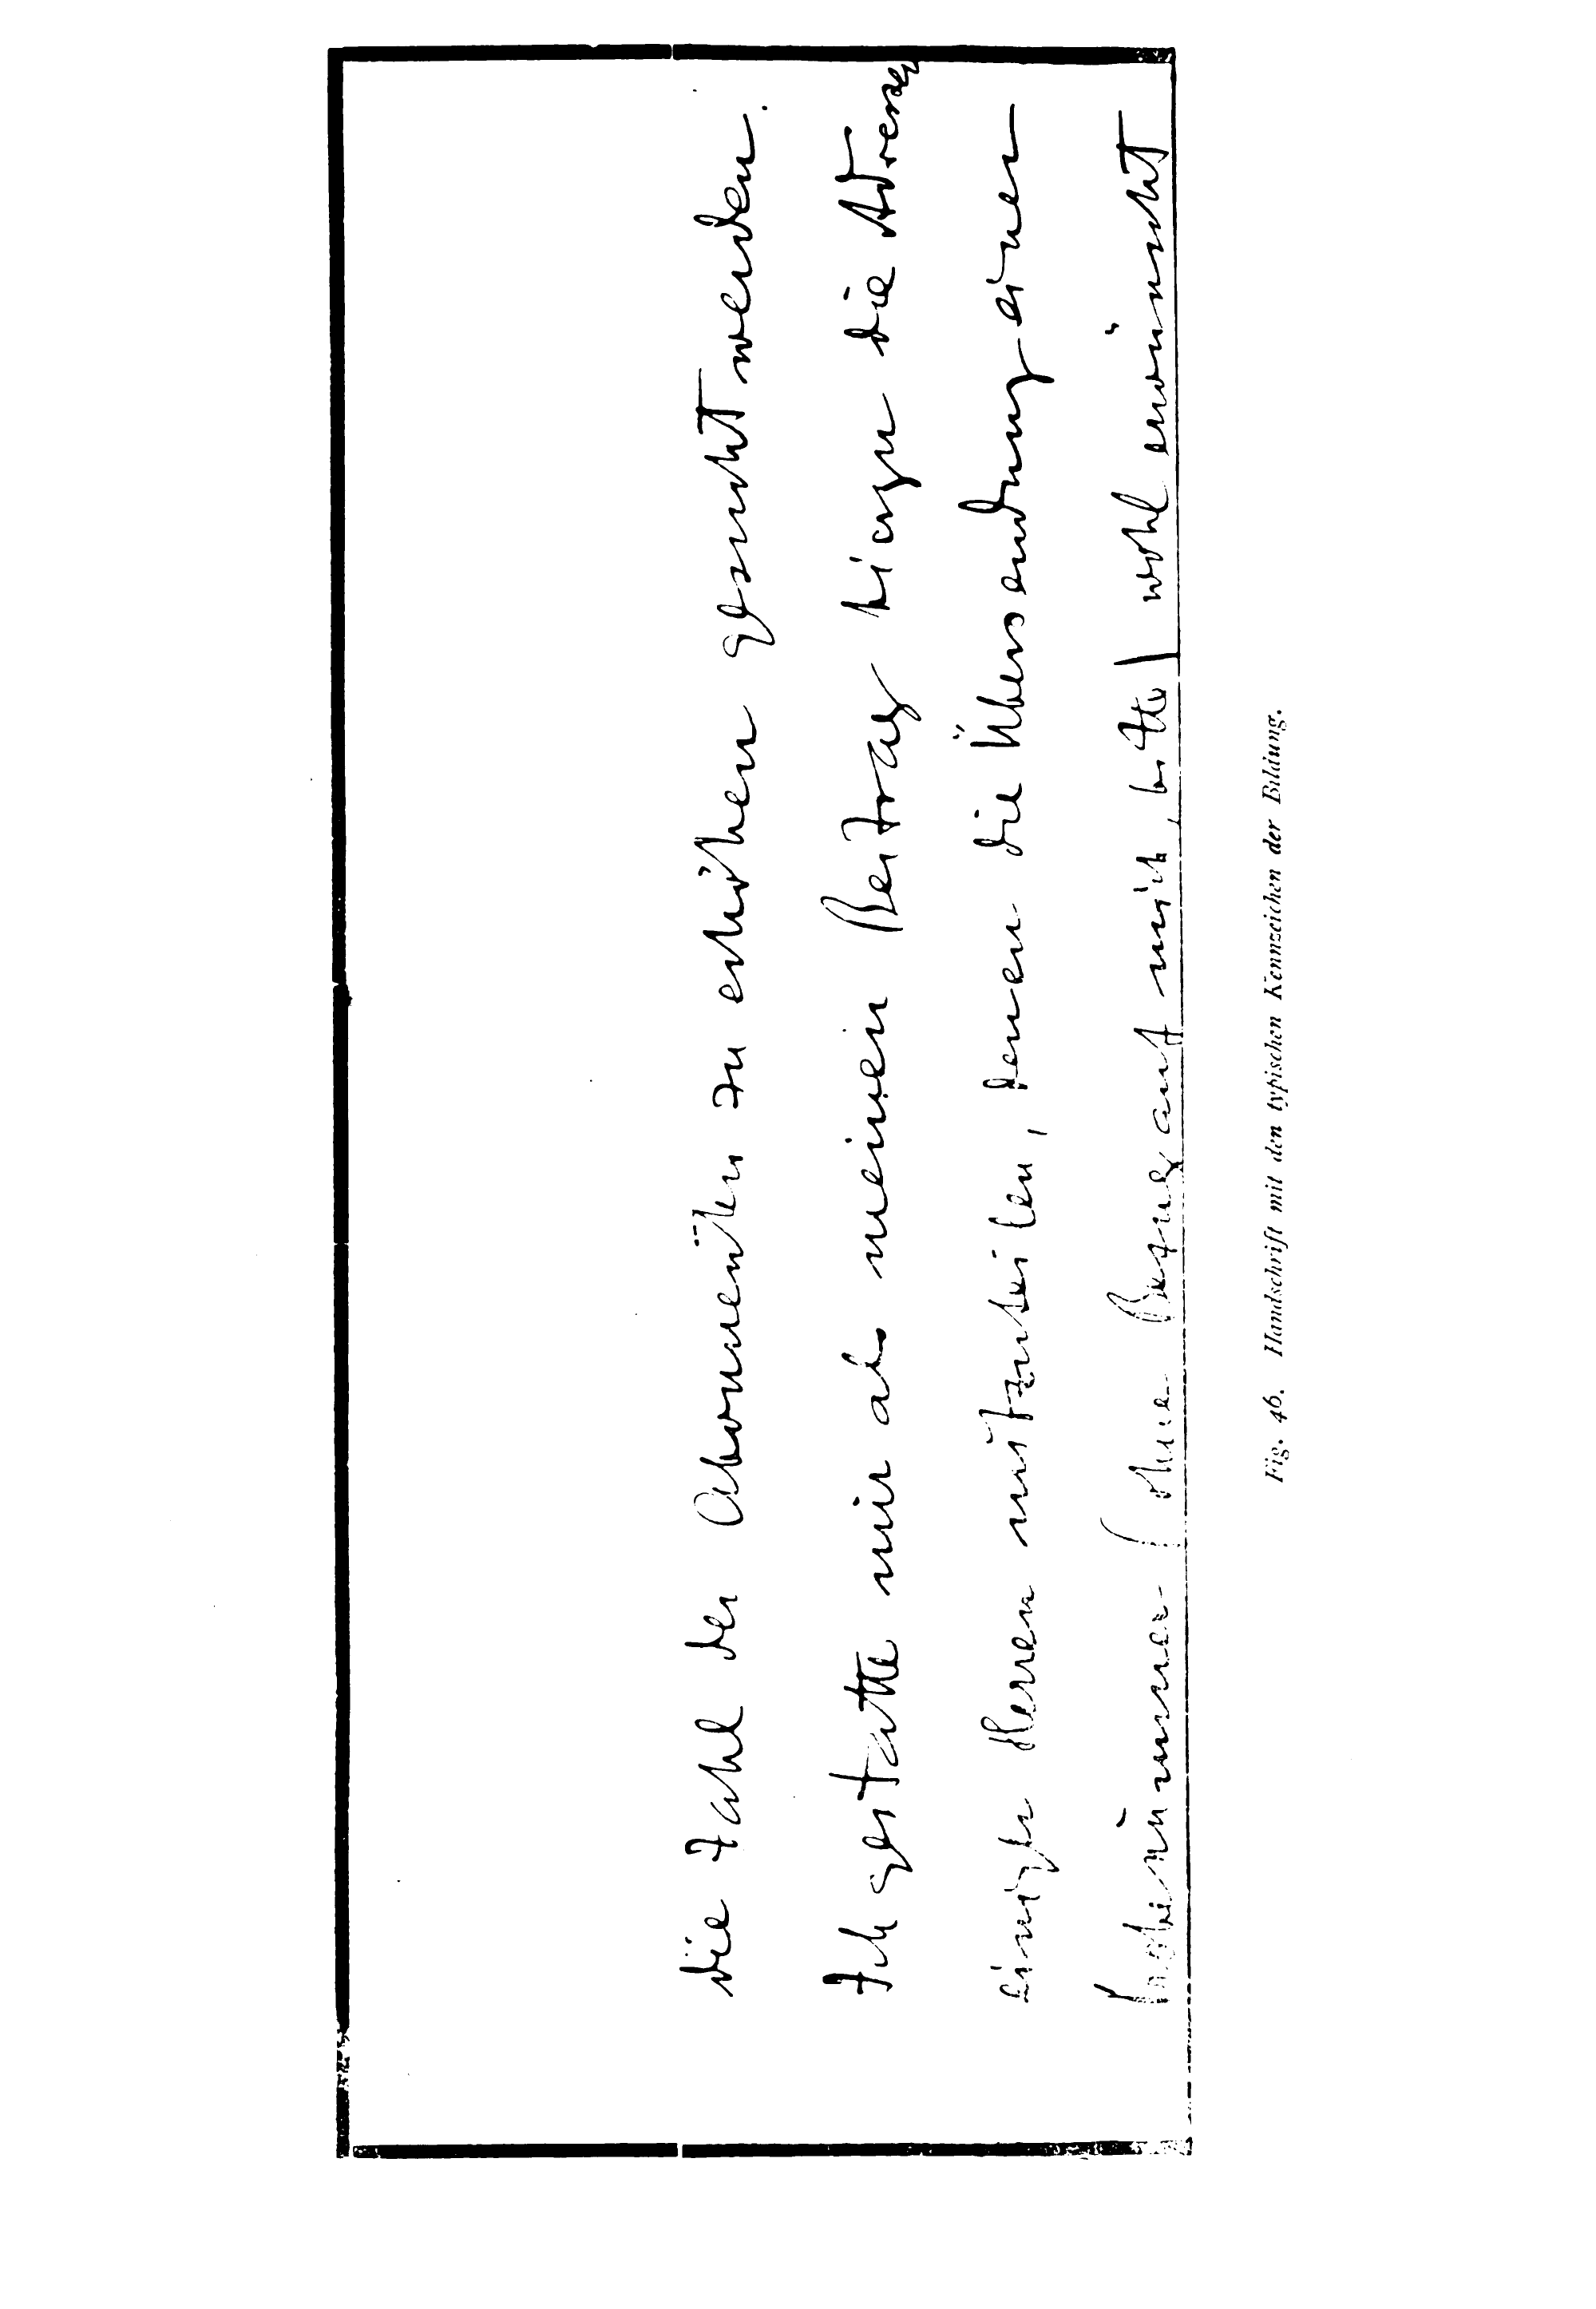 die Zahl der Abonnenten zu erhöhen gesucht werden.
Ich gestatte mir als meinen Beitrag hiezu die Adressen
einiger Herren mitzuteilen, denen die Übersendung einer
Probenummer (ohne Bezug auf mich, bitte) wohl erwünscht
Fig. 46. Handschrift mit den typischen Kennzeichen der Bildung.